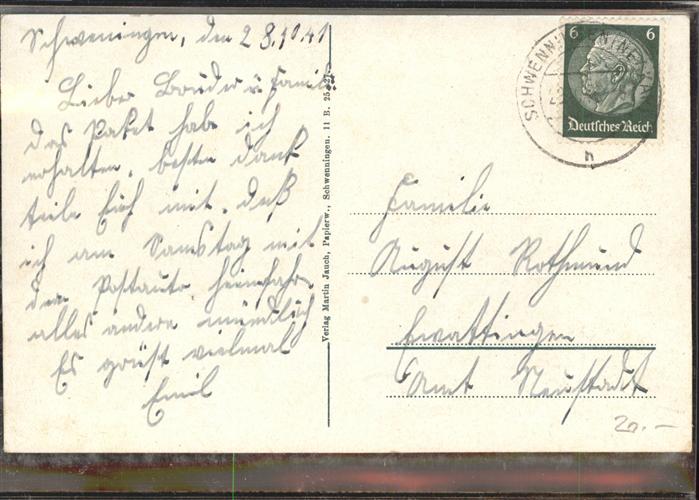 Schwenningen, den 28.10.41
Lieber Bruder u. Familie
Das Paket habe ich
erhalten, besten Dank
teile Euch mit, daß
ich am Samstag mit
dem Postauto heimfahre
alles andere mündlich
Es grüßt vielmal
Emil
Verlag Martin Jauch, Papierw., Schwenningen. 11 B. 25
SCHWENNINGEN (NECKAR)
h
6 6
Deutsches Reich
Familie
August Rothmund
Ewattingen
Amt Neustadt
20.-